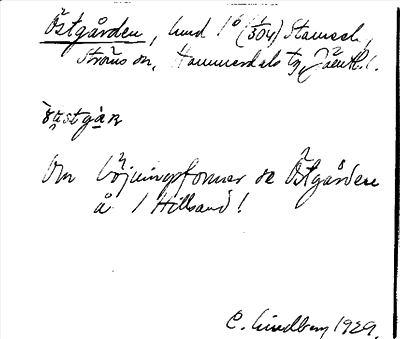 Östgården, hmd 1⁶ (1/304) Stamsele,
Ströms sn, Hammerdals tg, Jämtl. l.
östgɑ̀n
Om böjningsformer se Östgården
å 1 Hillsand!
C. Lindberg 1929.